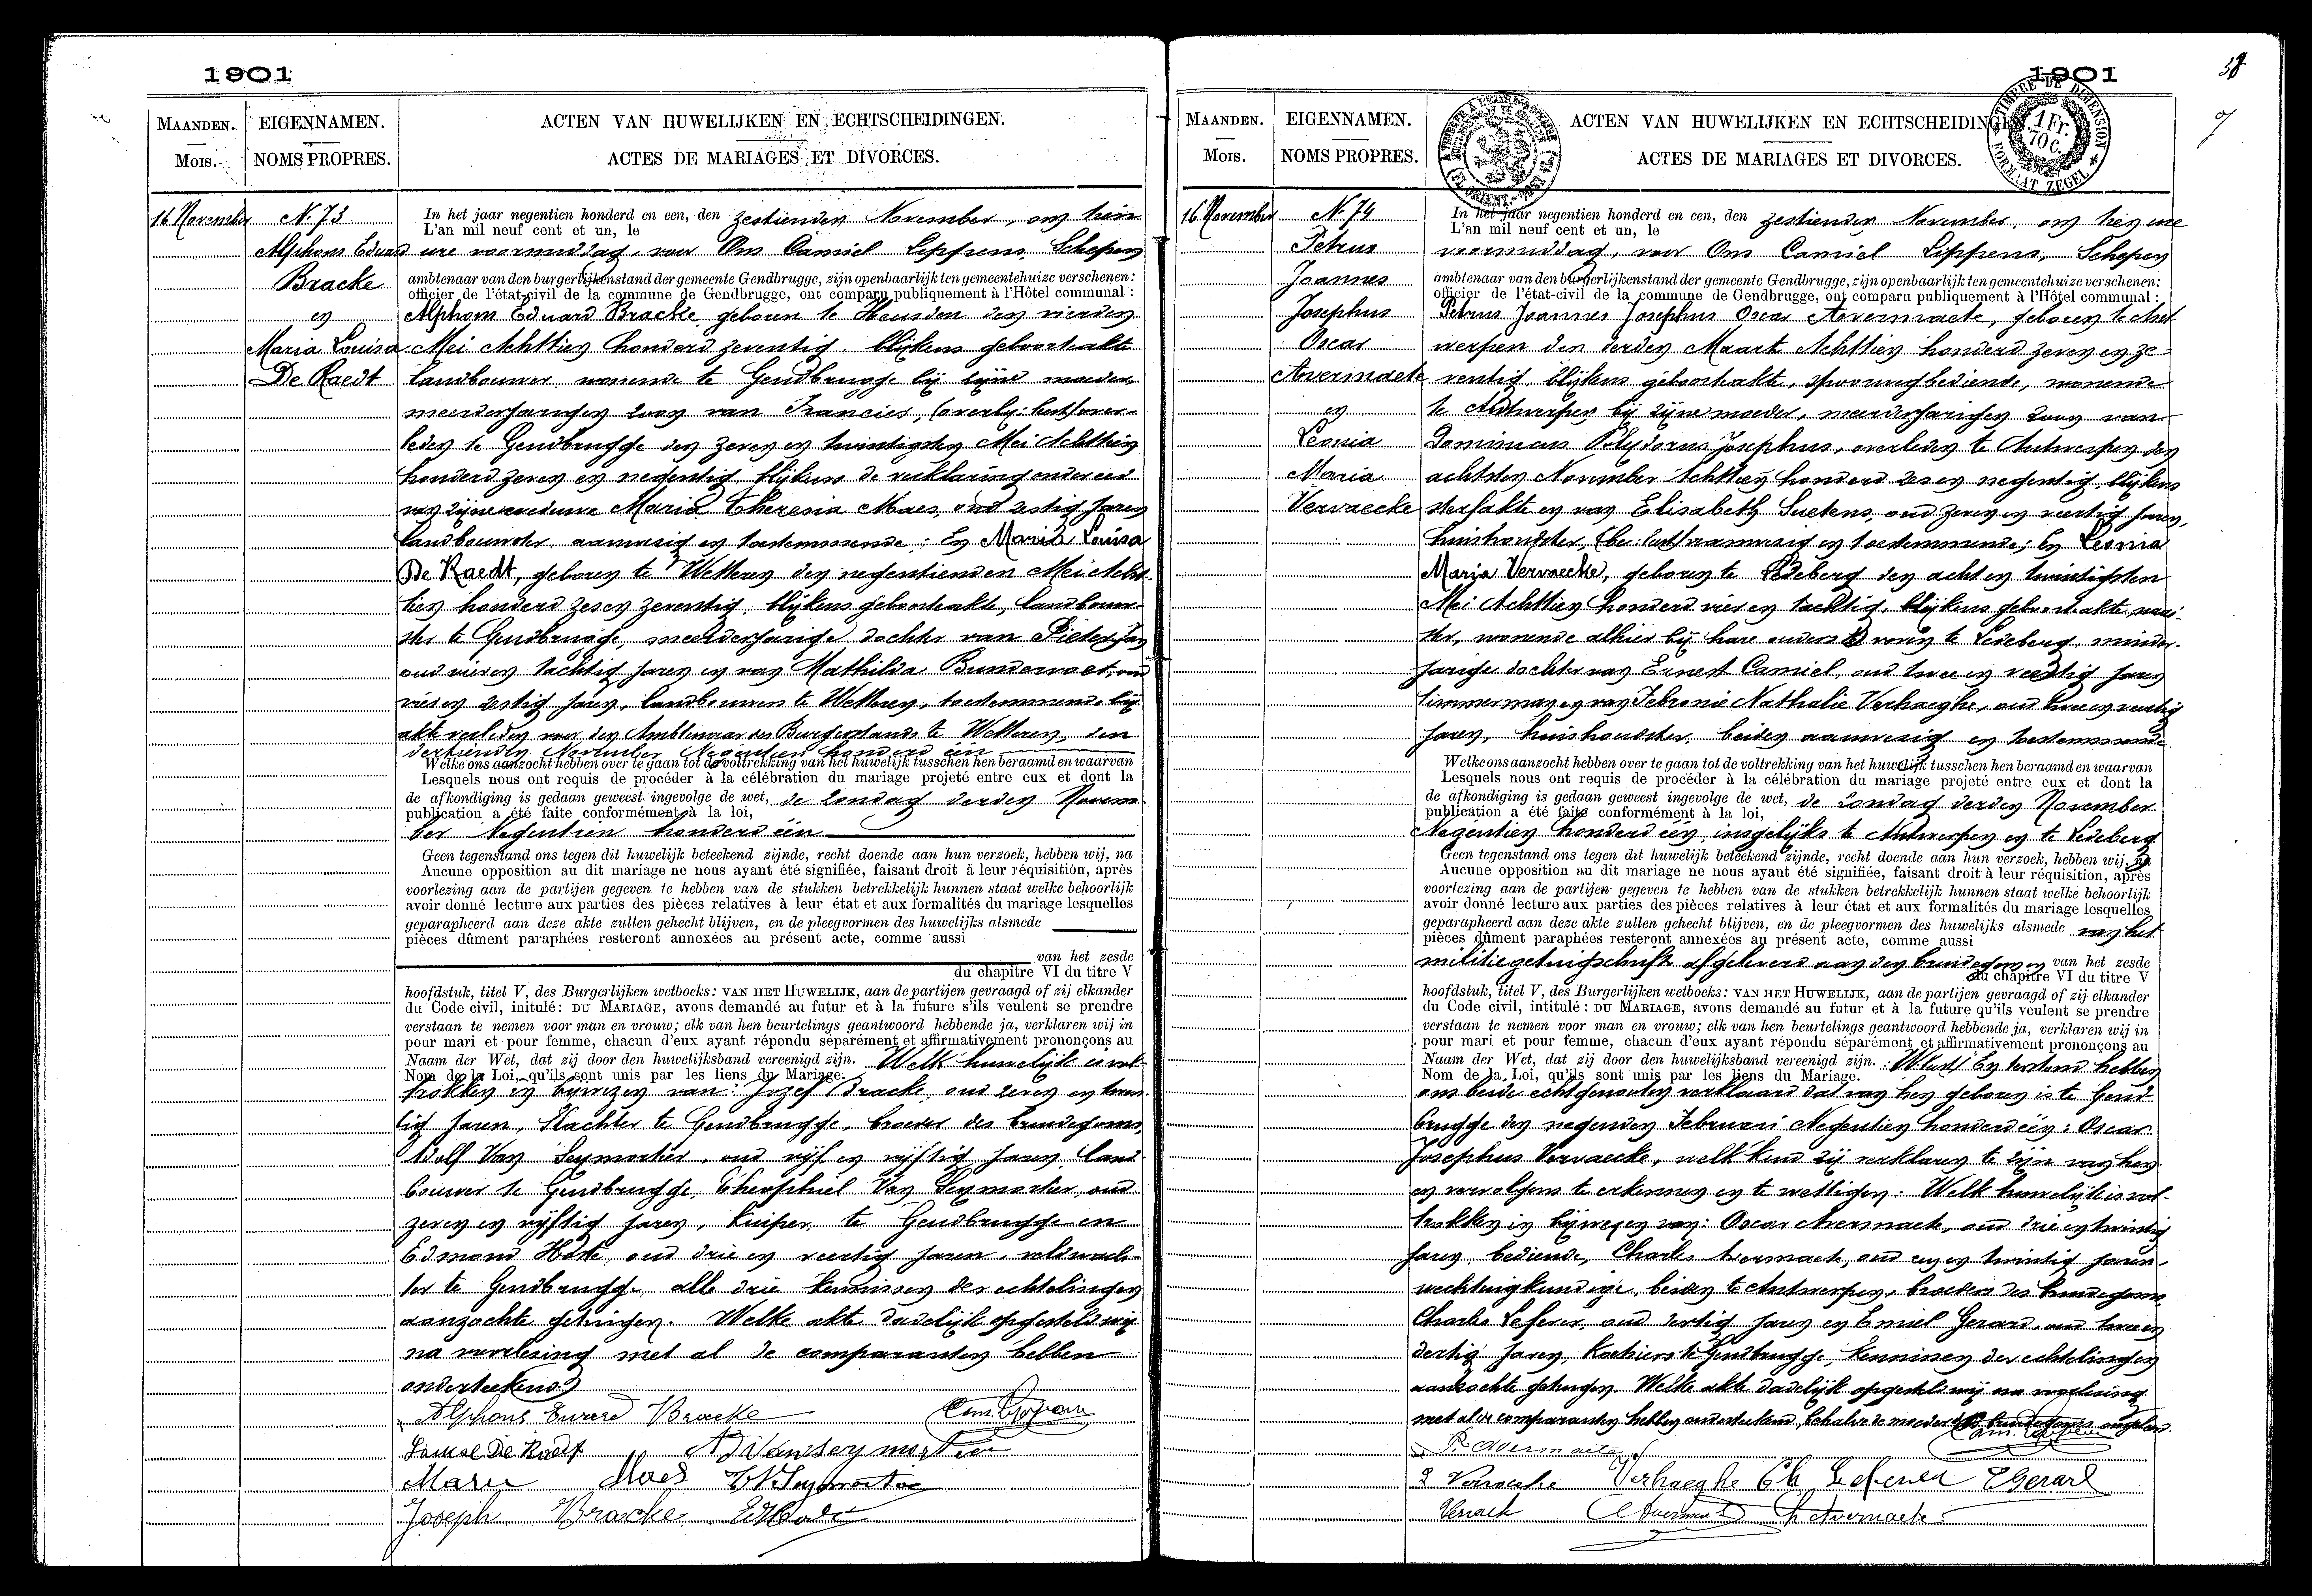 1901
MAANDEN.
MOIS.
EIGENNAMEN.
NOMS PROPRES.
ACTEN VAN HUWELIJKEN EN ECHTSCHEIDINGEN.
ACTES DE MARIAGES ET DIVORCES.
16 November
N. 73
Alphons Eduard
Bracke
en
Maria Louisa
De Raedt
In het jaar negentien honderd en een, den zestienden November, om tien
L'an mil neuf cent et un, le
ure voormiddag, voor Ons Camiel Lippens, Schepen
ambtenaar van den burgerlijkenstand der gemeente Gendbrugge, zijn openbaarlijk ten gemeentehuize verschenen:
officier de l'état-civil de la commune de Gendbrugge, ont comparu publiquement à l'Hôtel communal :
Alphons Eduard Bracke, geboren te Heusden den vierden
Mei Achttien honderd zeventig, blijkens geboorteakte
landbouwer, wonende te Gendbrugge bij zijne moeder,
meerderjarigen zoon van Francies, over-
leden te Gendbrugge den zeven en twintigsten Mei Achttien
honderd zeven en negentig, blijkens de verklaring onder eed
van zijne weduwe Maria Theresia Maes, oud zestig jaren
landbouwster, aanwezig en toestemmende; En Maria Louisa
De Raedt, geboren te Wetteren den negentienden Mei Acht-
tien honderd zes en zeventig, blijkens geboorteakte, landbouw-
ster te Gendbrugge, meerderjarige dochter van Pieter Jan
oud vier en tachtig jaren en van Mathilda Bundervoet, oud
vier en zestig jaren, landbouwers te Wetteren, toestemmende bij
akte verleden voor den Ambtenaar des Burgerstands te Wetteren, den
dertienden November Negentien honderd één
Welke ons aanzocht hebben over te gaan tot de voltrekking van het huwelijk tusschen hen beraamd en waarvan
Lesquels nous ont requis de procéder à la célébration du mariage projeté entre eux et dont la
de afkondiging is gedaan geweest ingevolge de wet, de zondag derden Novem-
publication a été faite conformément à la loi,
ber Negentien honderd één
Geen tegenstand ons tegen dit huwelijk beteekend zijnde, recht doende aan hun verzoek, hebben wij, na
Aucune opposition au dit mariage ne nous ayant été signifiée, faisant droit à leur réquisition, après
voorlezing aan de partijen gegeven te hebben van de stukken betrekkelijk hunnen staat welke behoorlijk
avoir donné lecture aux parties des pièces relatives à leur état et aux formalités du mariage lesquelles
geparapheerd aan deze akte zullen gehecht blijven, en de pleegvormen des huwelijks alsmede
pièces dûment paraphées resteront annexées au présent acte, comme aussi
van het zesde
du chapitre VI du titre V
hoofdstuk, titel V, des Burgerlijken wetboeks: VAN HET HUWELIJK, aan de partijen gevraagd of zij elkander
du Code civil, initulé: DU MARIAGE, avons demandé au futur et à la future s'ils veulent se prendre
verstaan te nemen voor man en vrouw; elk van hen beurtelings geantwoord hebbende ja, verklaren wij in
pour mari et pour femme, chacun d'eux ayant répondu séparément et affirmativement prononçons au
Naam der Wet, dat zij door den huwelijksband vereenigd zijn. Welk huwelijk is vol-
Nom de la Loi, qu'ils sont unis par les liens du Mariage.
trokken in bijwezen van: Jozef Bracke, oud zeven en twin-
tig jaren, Slachter te Gendbrugge, broeder des bruidegoms,
Adolf Van Seymortier, oud vijf en vijftig jaren, land-
bouwer te Gendbrugge, Theophiel Van Seymortier, oud
zeven en vijftig jaren, Kuiper te Gendbrugge en
Edmond Hoste, oud drie en veertig jaren, veldwach-
ter te Gendbrugge, alle drie kennissen der echtelingen
aanzochte getuigen. Welke akte dadelijk opgesteld wij
na voorlezing met al de comparanten hebben
onderteekend
Alphons Eduard Bracke
Louise De Raedt
Ad Vanseymortier
Marie Maes
Joseph Bracke
1901
38
MAANDEN.
MOIS.
EIGENNAMEN.
NOMS PROPRES.
ACTEN VAN HUWELIJKEN EN ECHTSCHEIDINGEN
ACTES DE MARIAGES ET DIVORCES.
TIMBRE DE DIMENSION
1 Fr.
70 C.
FORMAAT ZEGEL
16 November
N. 74
Petrus
Joannes
Josephus
Oscar
Avermaete
en
Leonia
Maria
Vervaecke
In het jaar negentien honderd en een, den zestienden November, om tien ure
L'an mil neuf cent et un, le
voormiddag, voor Ons Camiel Lippens, Schepen
ambtenaar van den burgerlijkenstand der gemeente Gendbrugge, zijn openbaarlijk ten gemeentehuize verschenen:
officier de l'état-civil de la commune de Gendbrugge, ont comparu publiquement à l'Hôtel communal :
Petrus Joannes Josephus Oscar Avermaete, geboren te Ant-
werpen den derden Maart Achttien honderd zeven en ze-
ventig, blijkens geboorteakte, spoorwegbediende, wonende
te Antwerpen bij zijne moeder, meerderjarigen zoon van
Dominicus Polydorus Josephus, overleden te Antwerpen den
achtsten November Achttien honderd zes en negentig, blijkens
sterfakte en van Elisabeth Suetens, oud zeven en veertig jaren,
huishoudster, aanwezig en toestemmende; En Leonia
Maria Vervaecke, geboren te Ledeberg den acht en twintigsten
Mei Achttien honderd vier en tachtig, blijkens geboorteakte, naai-
ster, wonende alhier bij hare ouders voren te Ledeberg, minder-
jarige dochter van Ernest Camiel, oud twee en veertig jaren
timmerman en van Febronie Nathalie Verhaeghe, oud twee en veertig
jaren, huishoudster, beiden aanwezig en toestemmende
Welke ons aanzocht hebben over te gaan tot de voltrekking van het huwelijk tusschen hen beraamd en waarvan
Lesquels nous ont requis de procéder à la célébration du mariage projeté entre eux et dont la
de afkondiging is gedaan geweest ingevolge de wet, de zondag derden November
publication a été faite conformément à la loi,
Negentien honderd één, insgelijks te Antwerpen en te Ledeberg
Geen tegenstand ons tegen dit huwelijk beteekend zijnde, recht doende aan hun verzoek, hebben wij, na
Aucune opposition au dit mariage ne nous ayant été signifiée, faisant droit à leur réquisition, après
voorlezing aan de partijen gegeven te hebben van de stukken betrekkelijk hunnen staat welke behoorlijk
avoir donné lecture aux parties des pièces relatives à leur état et aux formalités du mariage lesquelles
geparapheerd aan deze akte zullen gehecht blijven, en de pleegvormen des huwelijks alsmede van het
pièces dûment paraphées resteront annexées au présent acte, comme aussi
militiegetuigschrift afgeleverd aan den bruidegom en van het zesde
du chapitre VI du titre V
hoofdstuk, titel V, des Burgerlijken wetboeks: VAN HET HUWELIJK, aan de partijen gevraagd of zij elkander
du Code civil, intitulé: DU MARIAGE, avons demandé au futur et à la future qu'ils veulent se prendre
verstaan te nemen voor man en vrouw; elk van hen beurtelings geantwoord hebbende ja, verklaren wij in
pour mari et pour femme, chacun d'eux ayant répondu séparément et affirmativement prononçons au
Naam der Wet, dat zij door den huwelijksband vereenigd zijn. En terstond hebben
Nom de la Loi, qu'ils sont unis par les liens du Mariage.
ons beide echtgenooten verklaard dat van hen geboren is te Gend-
brugge den negenden Februari Negentien honderd één: Oscar
Josephus Vervaecke, welk kind zij verklaren te zijn van hen
en vervolgens te erkennen en te wettigen. Welk huwelijk is vol-
trokken in bijwezen van: Oscar Avermaete, oud drie en twintig
jaren, bediende, Charles Avermaete, oud een en twintig jaren,
werktuigkundige, beiden te Antwerpen, broeders des bruidegoms
Charles Lefever, oud dertig jaren en Emiel Gerard, oud twee en
dertig jaren, te Gendbrugge, kennissen der echtelingen
aanzochte getuigen. Welke akte dadelijk opgesteld wij na voorlezing
met al de comparanten hebben onderteekend, behalve de moeder des bruidegoms
P. Avermaete
L Vervaecke Verhaeghe Ch Lefever E Gerard
Ch Avermaete